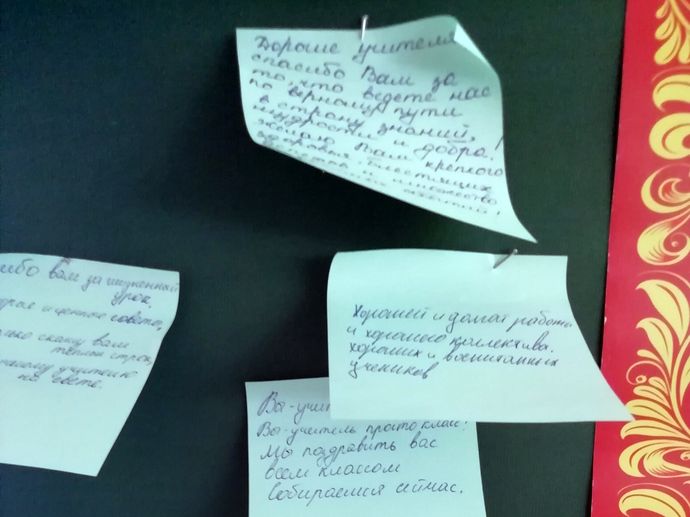 Дорогие учителя
спасибо Вам за
то, что ведете нас
по верному пути
в страну знаний,
мудрости и добра!
желаю Вам крепкого
здоровья, блестящих
и множество
Вам за жизненный
урок,
и ценные советы,
скажу вам
теплых строк,
учителю
на свете.
Хорошей и долгой работы
и хорошего коллектива.
Хороших и воспитанных
учеников
Вы-учитель просто класс!
Мы поздравить вас
всем классом
Собираемся сейчас.